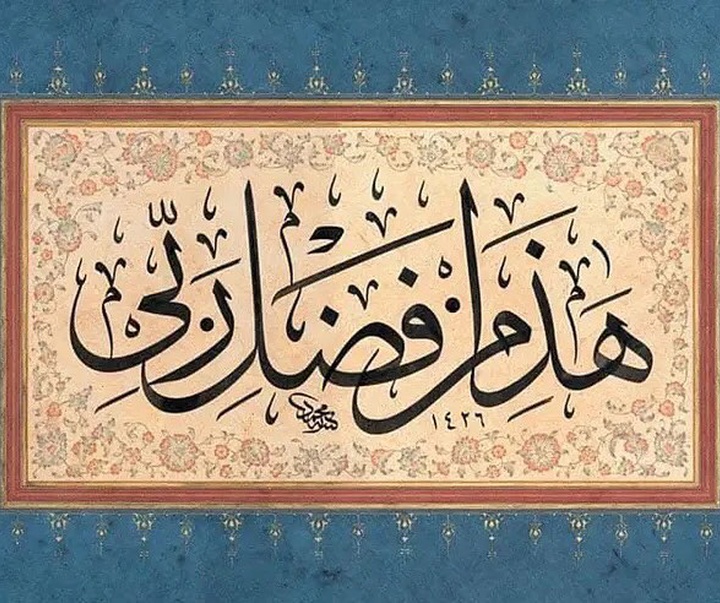 هَذَا مِنْ فَضْلِ رَبِّي
١٤٢٦